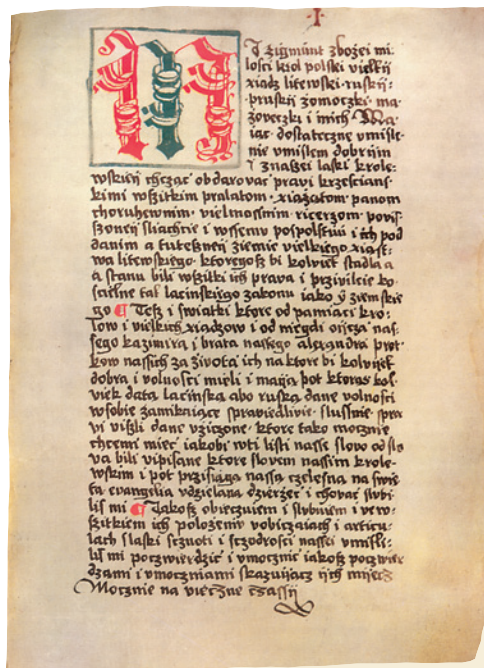 ·I·
M
Ij zigmunt zbozei mi:
losci krol polski vielkii
xiądz litewski · ruskii:
· pruskii zomoczki · ma:
zoveczki i inich Ma
iąc · dostateczne vmisle:
nie vmislem dobrijm
I znaszei laski krole:
wskieij chcząc obdarovac pravi krzescians:
kimi wszitkim pralatom · xiązątom panom
choruhewnim · vielmosnim · ricerzom · povis:
szoneij sliachtie i wssemu pospolstwu i ich pod
danim a tutesneij ziemie vielkiego xiąst:
wa litewskiego · ktoregosz bi kolviek stadla a
a stanu bili wszitki ich prava i prizivileie ko:
scielne tak lacinskiego zakonu iako ÿ ziemskie
go ¶ Tesz i swiatki ktore od pamiąci kro:
low i vielkich xiądzow i od niegdi oijcza nas:
sego kazimira i brata nassego alexandra prot:
kow nassich za zivota ich na ktore bi kolvijek
dobra i volnosci mieli i maiją pot ktorąs kol:
viek datą lacinską abo ruską dane volnosci
w sobie zamikaiące spraviedlivie · slussnie · spra
vi viszli dane vziczone · ktore tako mocznie
chcemi miec iakobi w ti listi nasse slovo od slo
va bili vipisane ktore slovem nassim krole:
wskim i pot przisiągą nassą czelesną na swię
tą evangelia vdzielaną dzierzec i chovac slvbi
lismi ¶ Iakosz obieczuiem i slvbuiem i ve w:
szitkiem ich polozeniv vobiczaiach i articu:
lach zlaski sczvoti i sczodrosci nassei vmisli:
lismi poczwierdzic i vmocznic iakosz poczwier
dzami i vmoczniami skazuijącz ijch mijecz
Mocznie na vieczne czassij